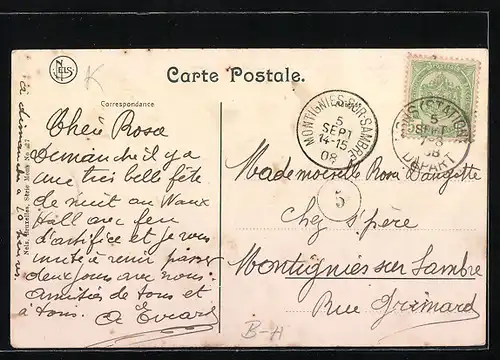 NELS
K
Carte Postale.
Correspondance
Chère Rosa
Dimanche il y a
une très belle fête
de nuit au Waux
Hall avec feu
d'artifice et je vous
invite à venir passer
deux jours avec nous.
Amitiés de tous et
à tous.
A Evrard
à dimanche à
Nels, Bruxelles, Série Mons No. 27
MONTIGNIES-SUR-SAMBRE
5
SEPT
14-15
08
(STATION)
5
SEPT
7-8
08
DÉPART
5
Mademoiselle Rosa
Chez s/père
Montignies sur Sambre
Rue Grimard
B-H